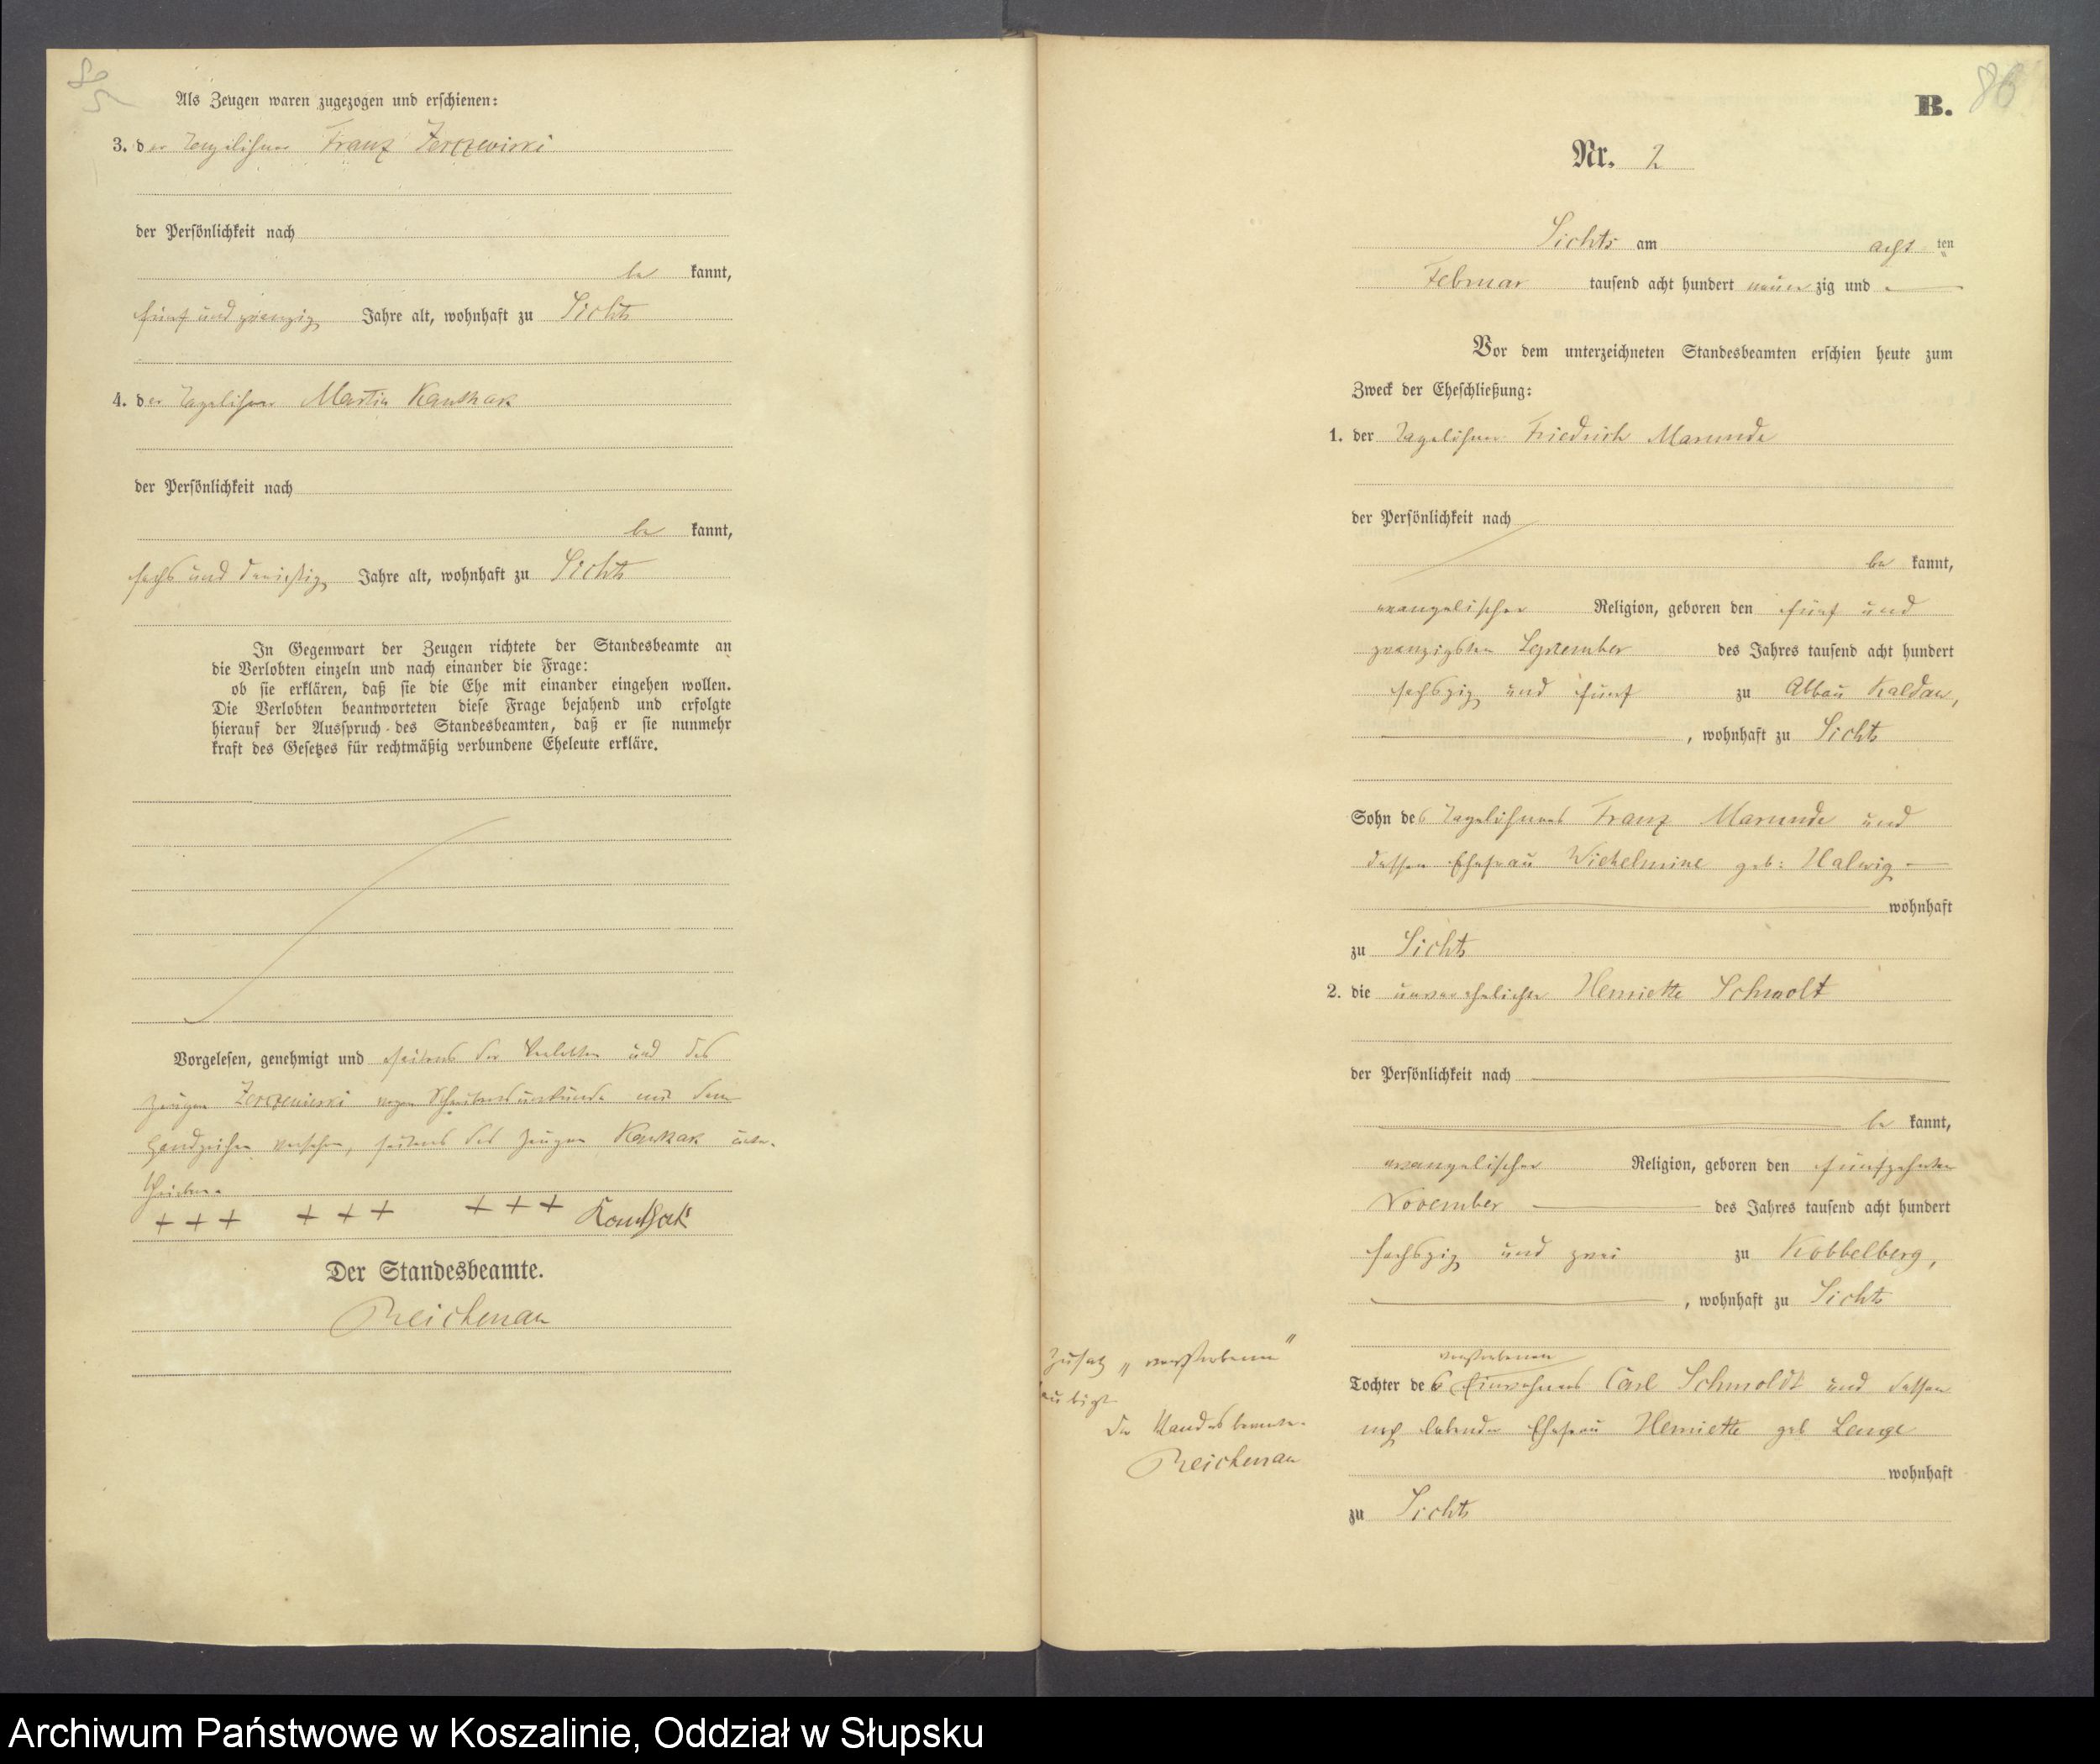 85
Als Zeugen waren zugezogen und erschienen:
3. der Tagelöhner Franz
der Persönlichkeit nach
be kannt,
fünf und zwanzig Jahre alt, wohnhaft zu Sichts
4. der Tagelöhner Martin Kautzak
der Persönlichkeit nach
be kannt,
sechs und dreißig Jahre alt, wohnhaft zu Sichts
In Gegenwart der Zeugen richtete der Standesbeamte an
die Verlobten einzeln und nach einander die Frage:
ob sie erklären, daß sie die Ehe mit einander eingehen wollen.
Die Verlobten beantworteten diese Frage bejahend und erfolgte
hierauf der Ausspruch des Standesbeamten, daß er sie nunmehr
kraft des Gesetzes für rechtmäßig verbundene Eheleute erkläre.
Vorgelesen, genehmigt und seitens der Verlobten und des
Zeugen wegen Schreibensunkunde mit dem
Handzeichen versehen, seitens des Zeugen Kautzak unter-
schrieben.
+++ +++ +++ Kautzak
Der Standesbeamte.
Reichenau
B.
86
Nr. 2
Sichts am acht ten
Februar tausend acht hundert neun zig und
Vor dem unterzeichneten Standesbeamten erschien heute zum
Zweck der Eheschließung:
1. der Tagelöhner Friedrich Marunde
der Persönlichkeit nach
be kannt,
evangelischer Religion, geboren den fünf und
zwanzigsten September des Jahres tausend acht hundert
sechszig und fünf zu Abbau Kaldau,
, wohnhaft zu Sichts
Sohn des Tagelöhners Franz Marunde und
dessen Ehefrau Wilhelmine geb: Halwig
wohnhaft
zu Sichts
2. die unverehelichte Henriette Schmolt
der Persönlichkeit nach
be kannt,
evangelischer Religion, geboren den fünfzehnten
November des Jahres tausend acht hundert
sechszig und zwei zu Kobbelberg,
, wohnhaft zu Sichts
verstorbenen
Tochter des Einwohners Carl Schmoldt und dessen
noch lebender Ehefrau Henriette geb Lenge
wohnhaft
zu Sichts
Zusatz „verstorbenen"
Der Standesbeamte.
Reichenau
Archiwum Państwowe w Koszalinie, Oddział w Słupsku